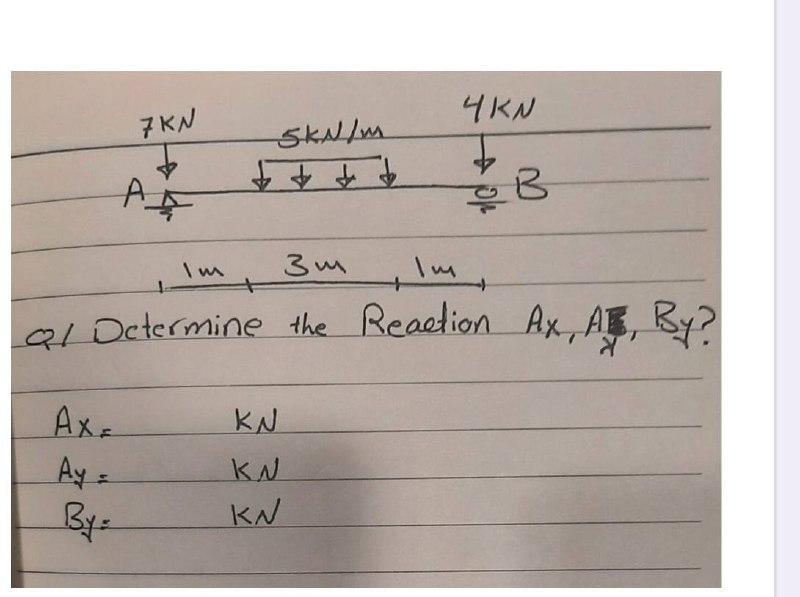 7KN
5KN/m
4KN
A
B
1m 3m 1m
Q/ Determine the Reaction Ax, Ay, By?
Ax= KN
Ay= KN
By= KN